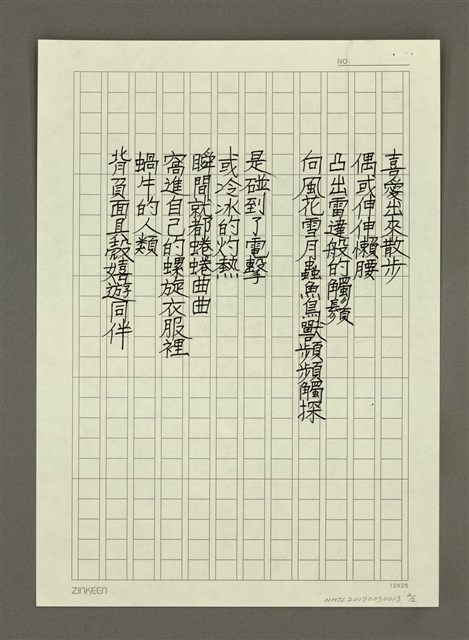 NO:
喜愛出來散步
偶或伸伸懶腰
凸出雷達般的觸鬚
向風花雪月蟲魚鳥獸頻頻觸探
是碰到了電擊
或冷冰的灼熱
瞬間就都蜷蜷曲曲
窩進自己的螺旋衣服裡
蝸牛的人類
背負面具殼嬉遊同伴
ZINKEEN
12X25
NMTL20170030013 2/2